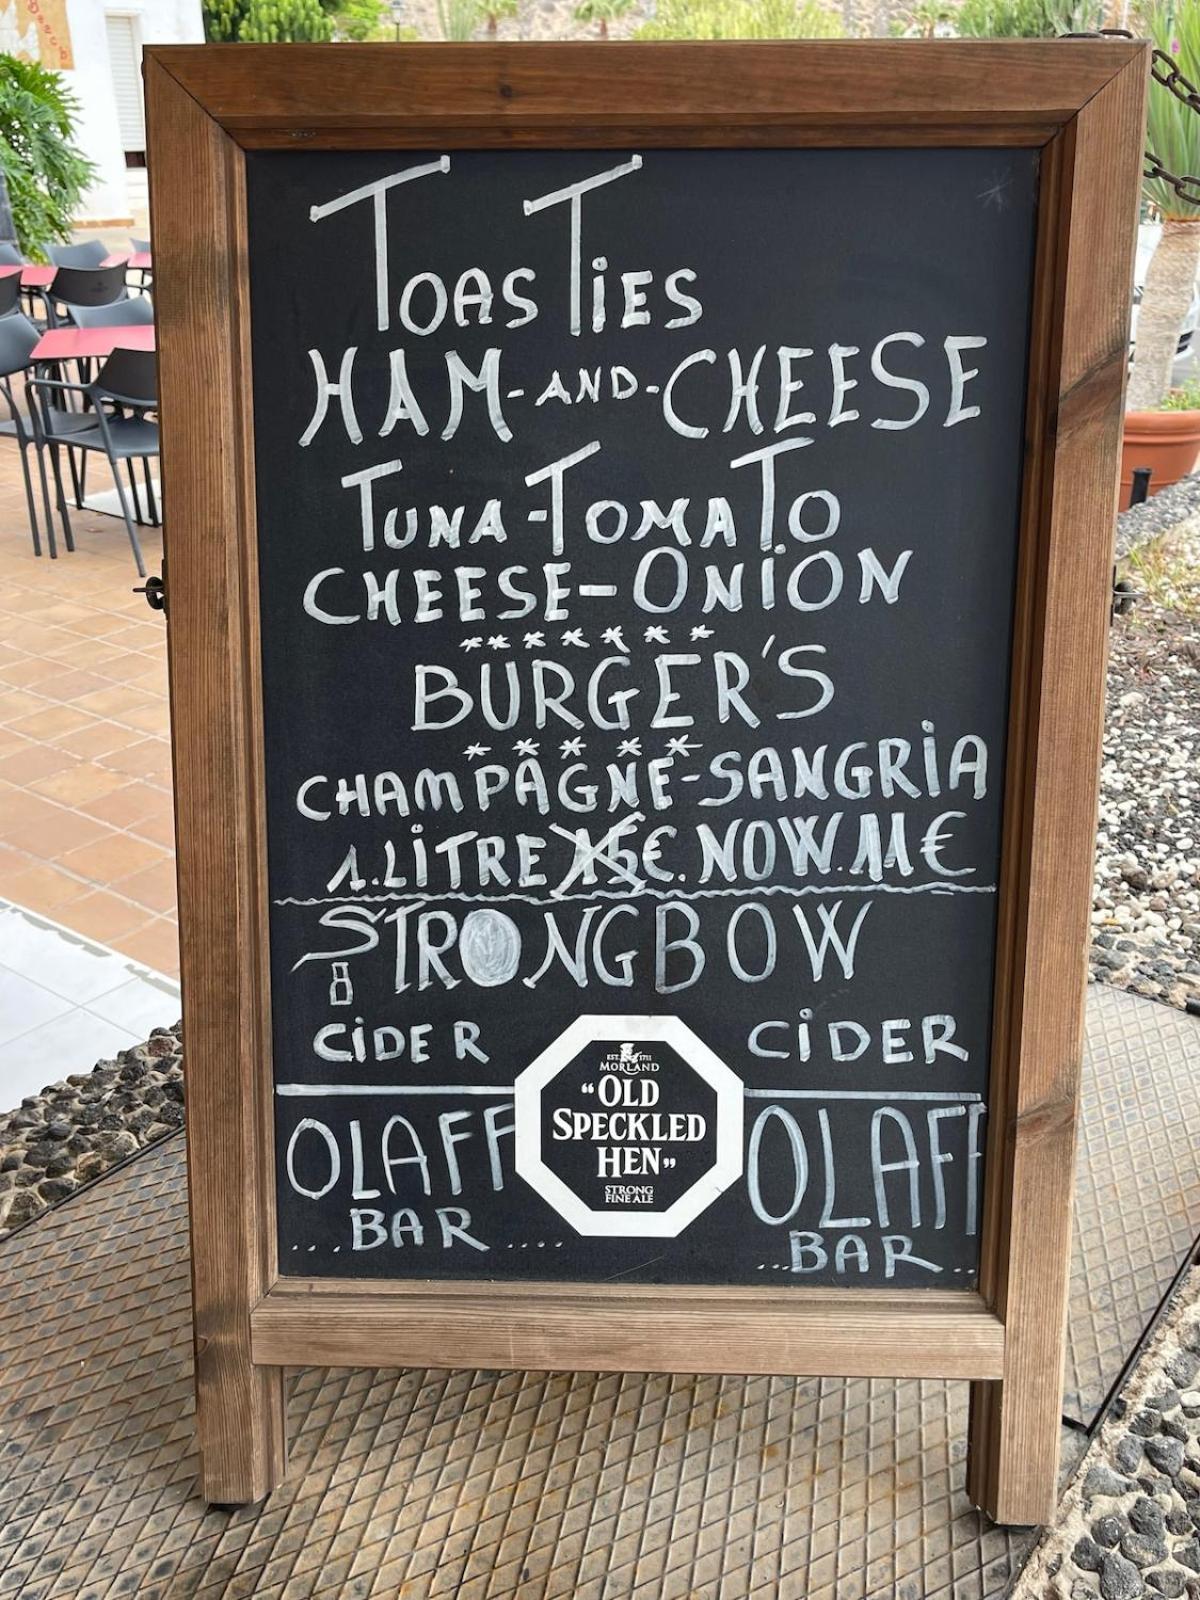 TOASTiES
HAM-AND-CHEESE
TUNA-TOMATO
CHEESE-ONiON
******
BURGER'S
*****
CHAMPAGNE-SANGRiA
1.LiTRE 15€. NOW.11€
STRONGBOW
CiDER CiDER
EST. 1711
MORLAND
"OLD
SPECKLED
HEN"
STRONG
FINE ALE
OLAFF OLAFF
BAR BAR